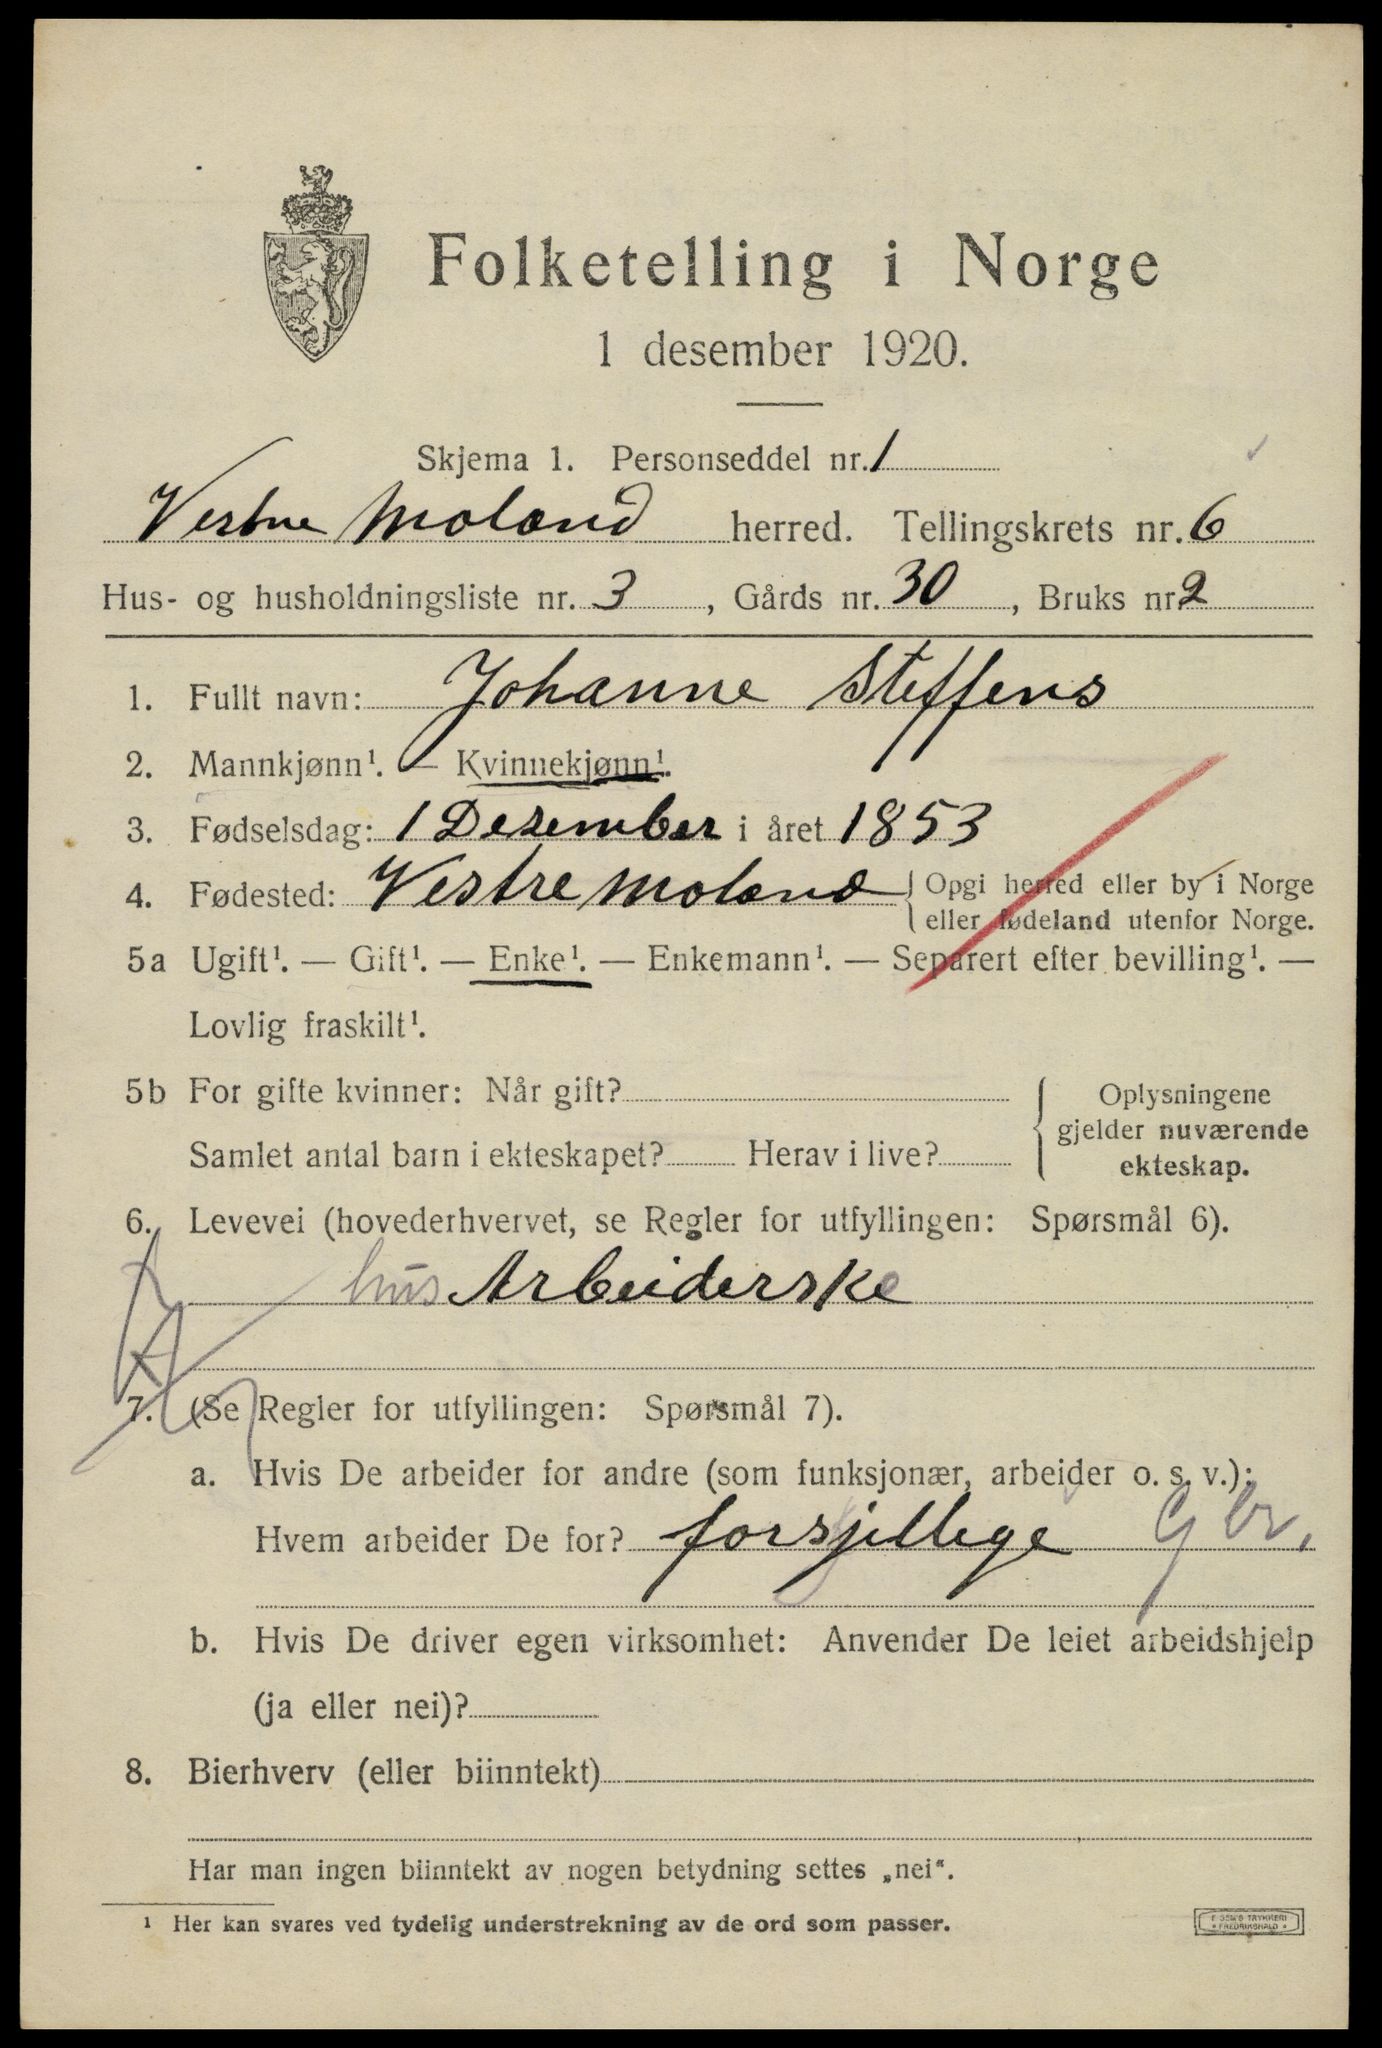 Folketelling i Norge
1 desember 1920.
Skjema 1. Personseddel nr. 1
Vestre Moland herred. Tellingskrets nr. 6
Hus- og husholdningsliste nr. 3, Gårds nr. 30, Bruks nr. 2
1. Fullt navn: Johanne Steffens
2. Mannkjønn¹. — Kvinnekjønn¹.
3. Fødselsdag: 1 Dezember i året 1853
4. Fødested: Vestre Moland { Opgi herred eller by i Norge
eller fødeland utenfor Norge.
5a Ugift¹. — Gift¹. — Enke¹. — Enkemann¹. — Separert efter bevilling¹. —
Lovlig fraskilt¹.
5b For gifte kvinner: Når gift?
Samlet antal barn i ekteskapet? Herav i live?
{ Oplysningene
gjelder nuværende
ekteskap.
6. Levevei (hovederhvervet, se Regler for utfyllingen: Spørsmål 6).
hus Arbeiderske
7. (Se Regler for utfyllingen: Spørsmål 7).
a. Hvis De arbeider for andre (som funksjonær, arbeider o. s. v.):
Hvem arbeider De for? forsjellige Gbr.
b. Hvis De driver egen virksomhet: Anvender De leiet arbeidshjelp
(ja eller nei)?
8. Bierhverv (eller biinntekt)
Har man ingen biinntekt av nogen betydning settes „nei“.
¹ Her kan svares ved tydelig understrekning av de ord som passer.
TRYKKERI
FREDRIKSHALD